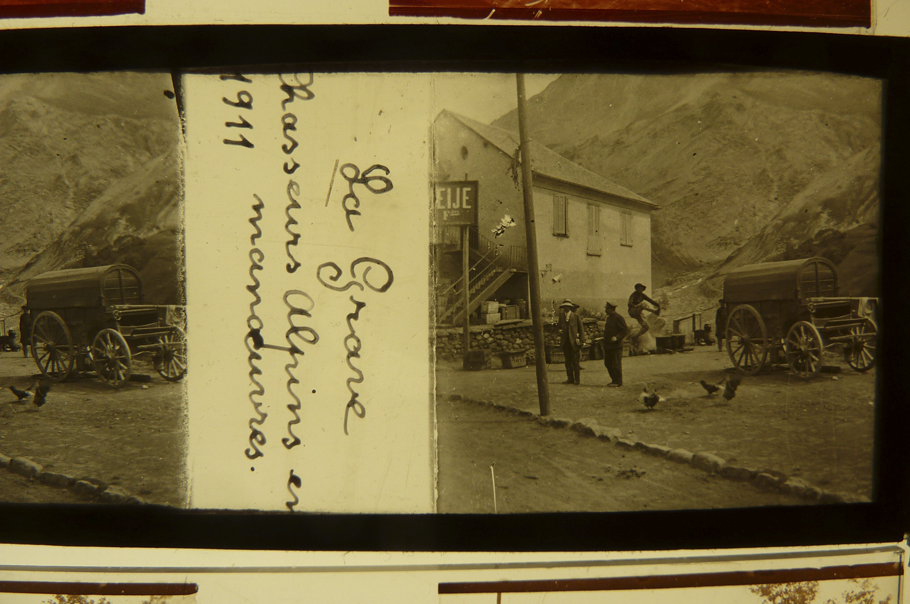 La Grave
Chasseurs Alpins en
manœuvres.
1911
EIJE